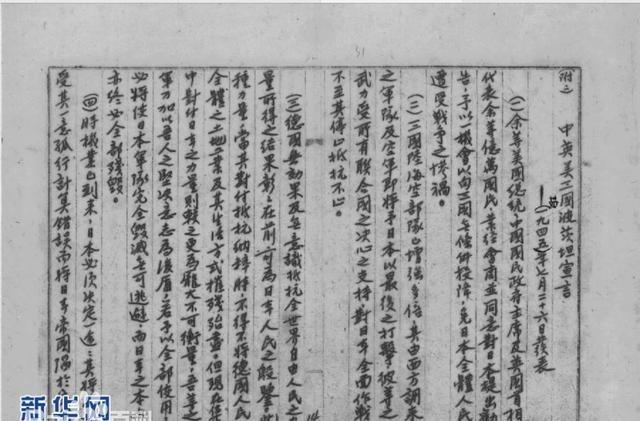 31
(附二) 中英美三國波茨坦宣言
——(一九四五)年七月二十六日發表
(一)余等美國總統、中國國民政府主席及英國首相
代表余等億萬國民,業經會商並同意對日本提出勸
告,予以一機會以向三國無條件投降,免日本全體人民
遭受戰爭之慘禍。
(二)三國陸海空部隊已增強多倍,其由西方調來
之軍隊及空軍即將予日本以最後之打擊,彼等之
武力受所有聯合國之決心之支持對日本全面作戰
不至其停止抵抗不止。
(三)德國無効果及無意識抵抗全世界自由人民之
量所得之結果彰々在前可為日本人民之殷鑒,此
種力量,當其對付抵抗納粹時不得不將德國人民
全體之土地工業及其生活方式摧殘殆盡,但現在集
中對付日本之力量則較之更為龐大不可衡量,吾等之
軍力加以吾人之堅決意志為後盾,若予以全部使用,
必將使日本軍隊完全毀滅無可逃避,而日本之本
亦終必全部殘毀。
(四)時機業已到來,日本必須決定一途:其將
受其一意孤行計算錯誤而將日本帝國陷於
新华网
百科